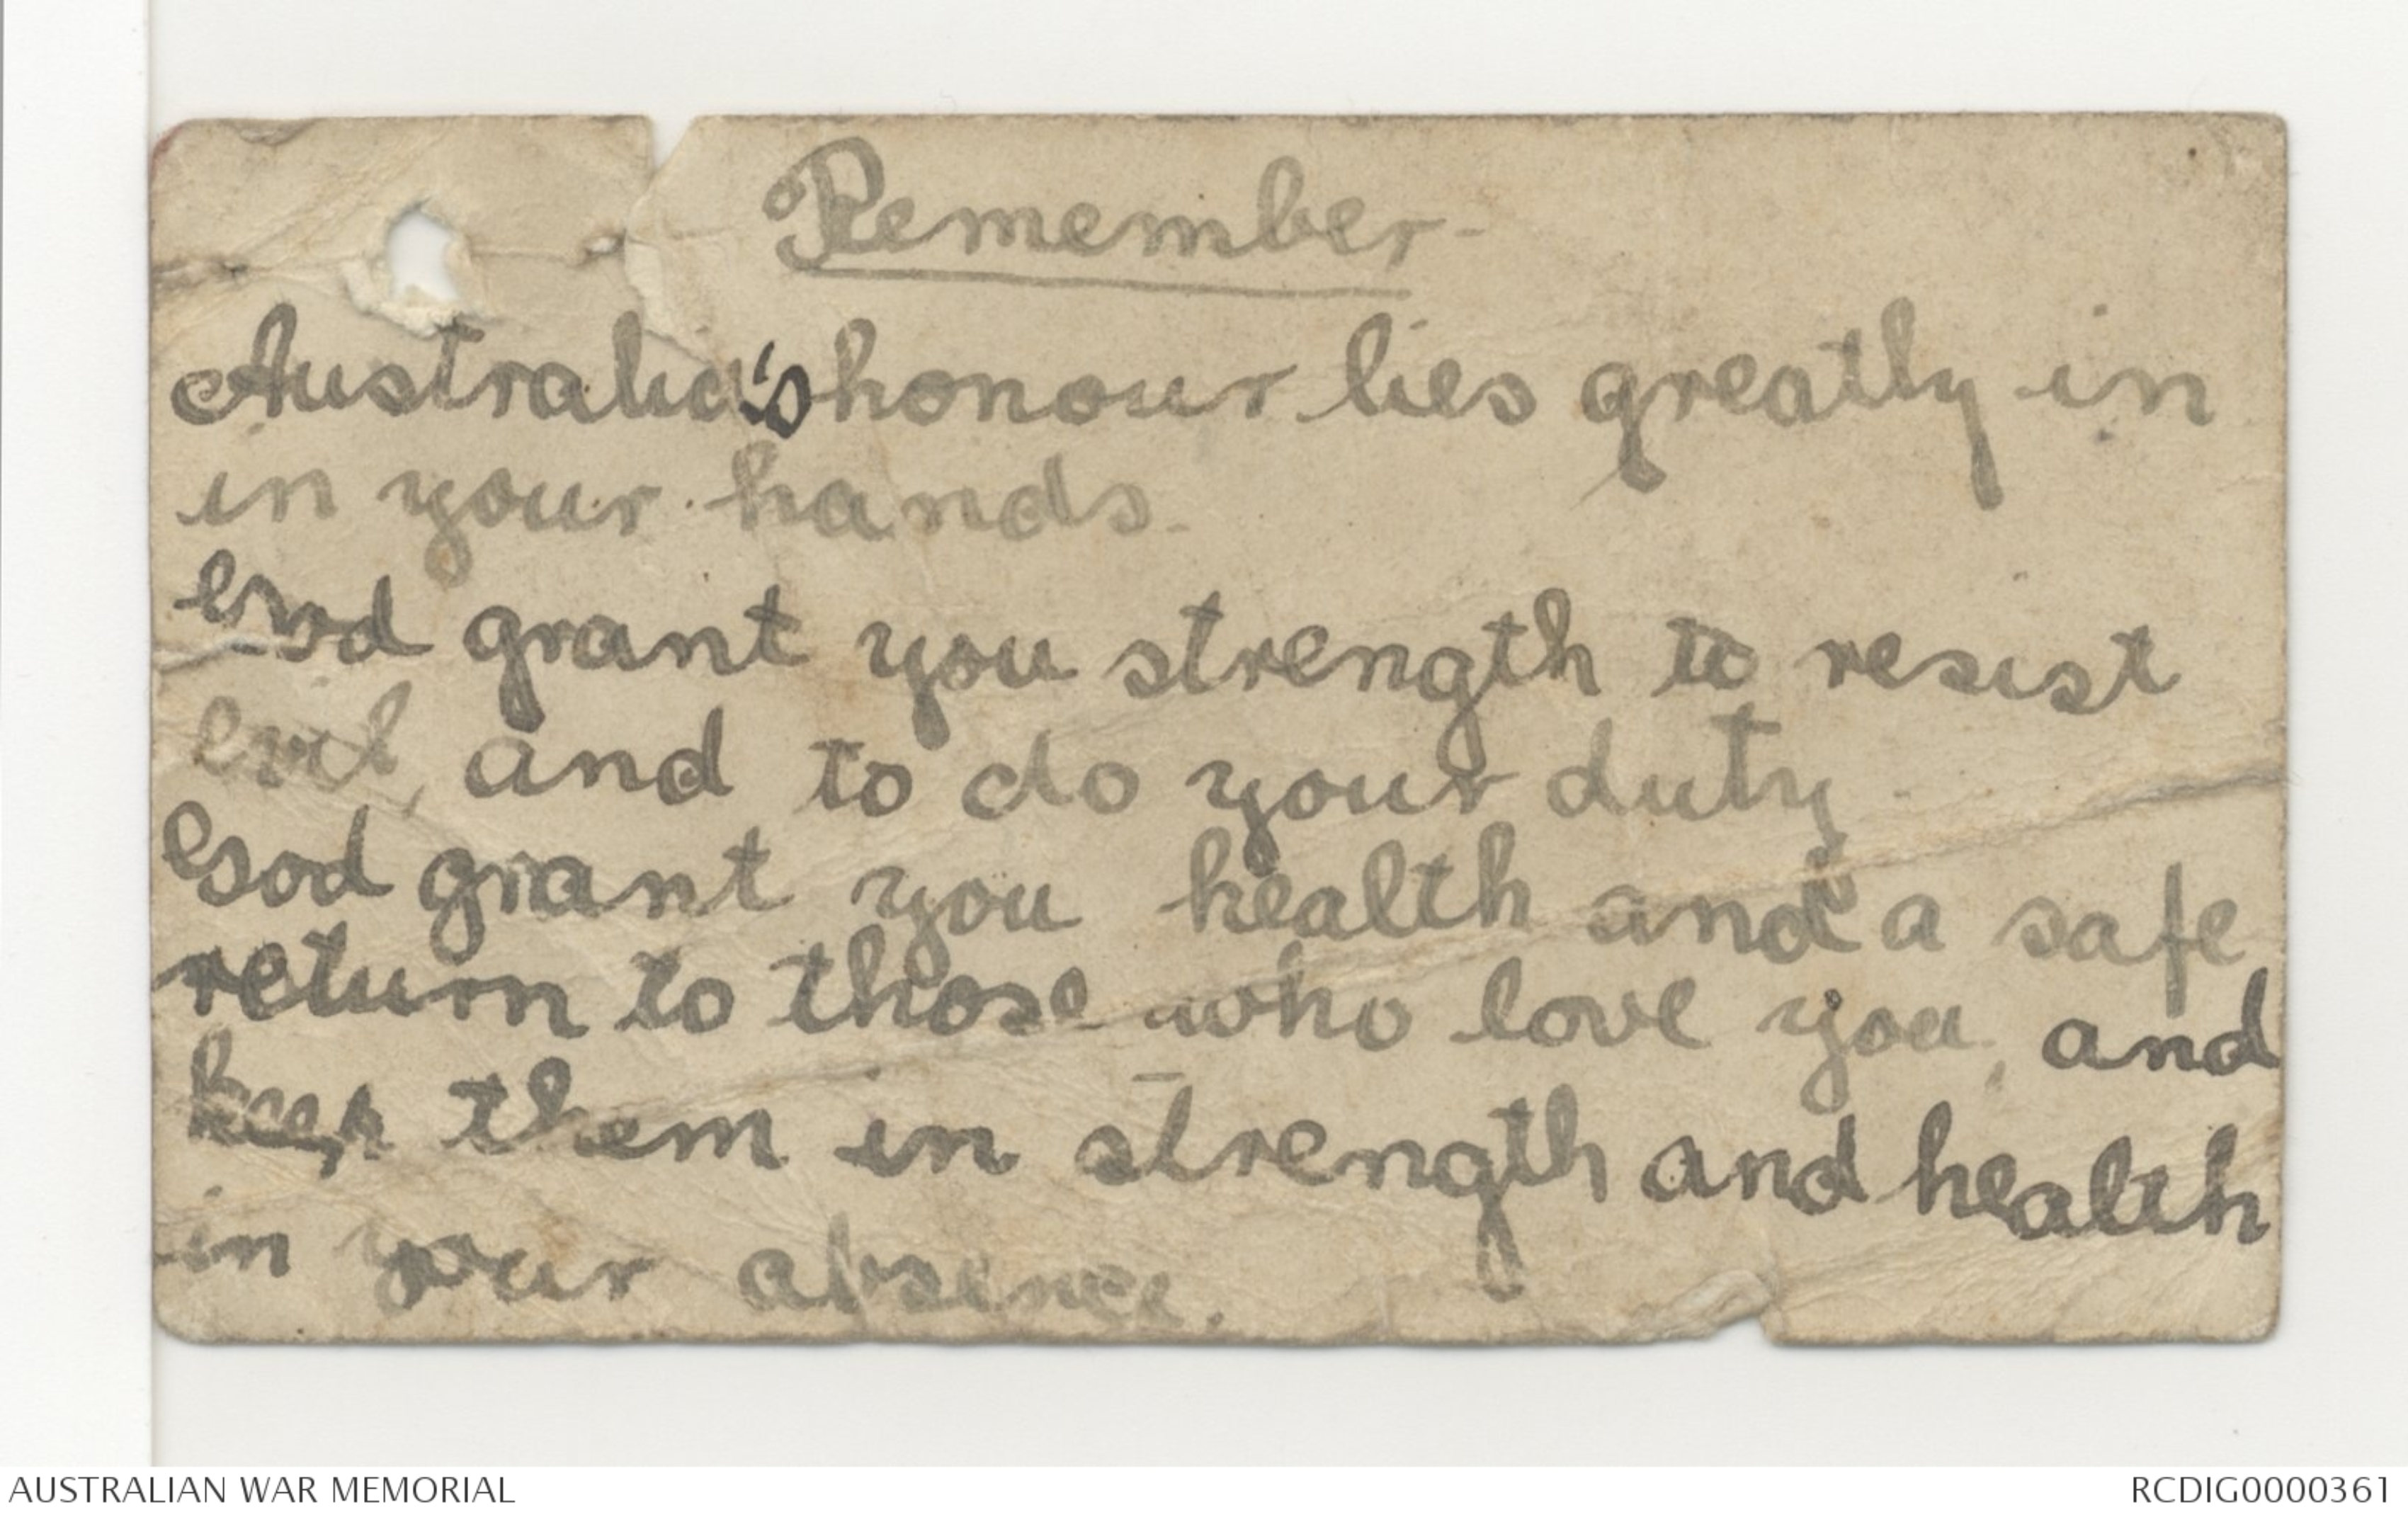 Remember-
Australia's honour lies greatly in
in your hands.
God grant you strength to resist
evil, and to do your duty
God grant you health and a safe
return to those who love you, and
keep them in strength and health
in your absence.
AUSTRALIAN WAR MEMORIAL
RCDIG0000361